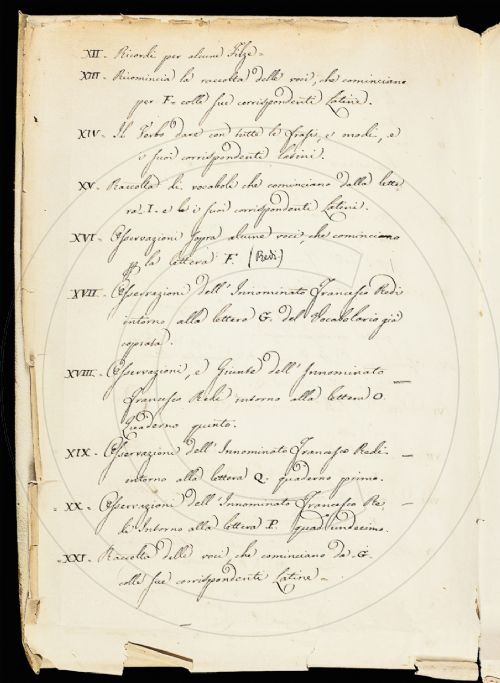 XII. Ricordi per alcune Filze=
XIII. Ricomincia la raccolta delle voci, che cominciano
per F= colle sue corrispondenti Latine.
XIV. Il Verbo dare con tutte le frasi, e modi, e
i suoi corrispondenti latini.
XV. Raccolta di vocaboli che cominciano dalla lette
ra I. e i suoi corrispondenti Latini.
XVI. Osservazioni sopra alcune voci, che cominciano
la lettera F. (Redi)
XVII. Osservazioni dell'Innominato Francesco Redi
intorno alla lettera G. del Vocabolario già
copiata.
XVIII. Osservazioni, e Giunte dell'Innominato
Francesco Redi intorno alla lettera O.
Quaderno quinto.
XIX. Osservazioni dell'Innominato Francesco Redi.
intorno alla lettera Q. quaderno primo.
XX. Osservazioni dell'Innominato Francesco Re,
di Intorno alla lettera P. quad. undecimo.
XXI. Raccolta delle voci, che cominciano da G.
colle sue corrispondenti Latine=